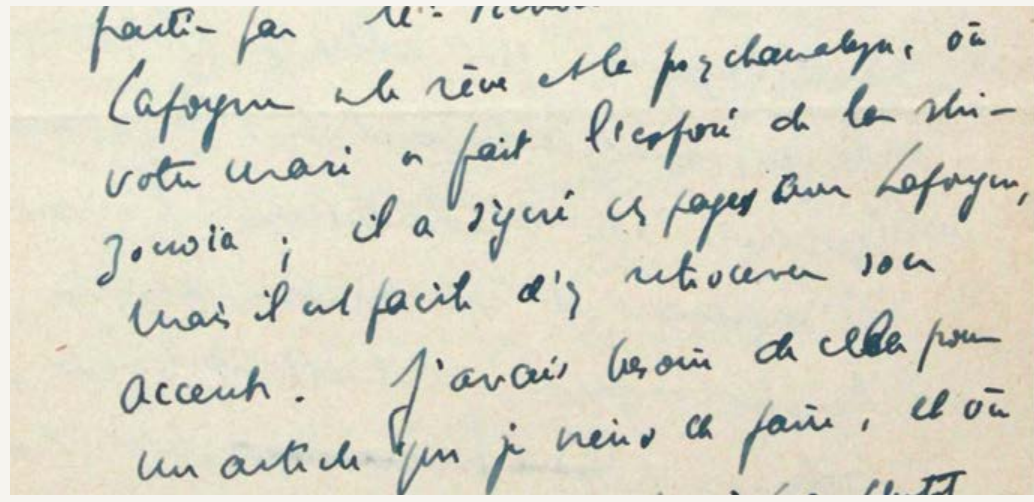 parti- par
Laforgue le rêve et la psychanalyse, où
votre mari a fait l'exposé de la shi-
zonoïa ; il a signé ces pages avec Laforgue,
mais il est facile d'y retrouver son
accent. J'avais besoin de cela pour
un article que je viens de faire, et où